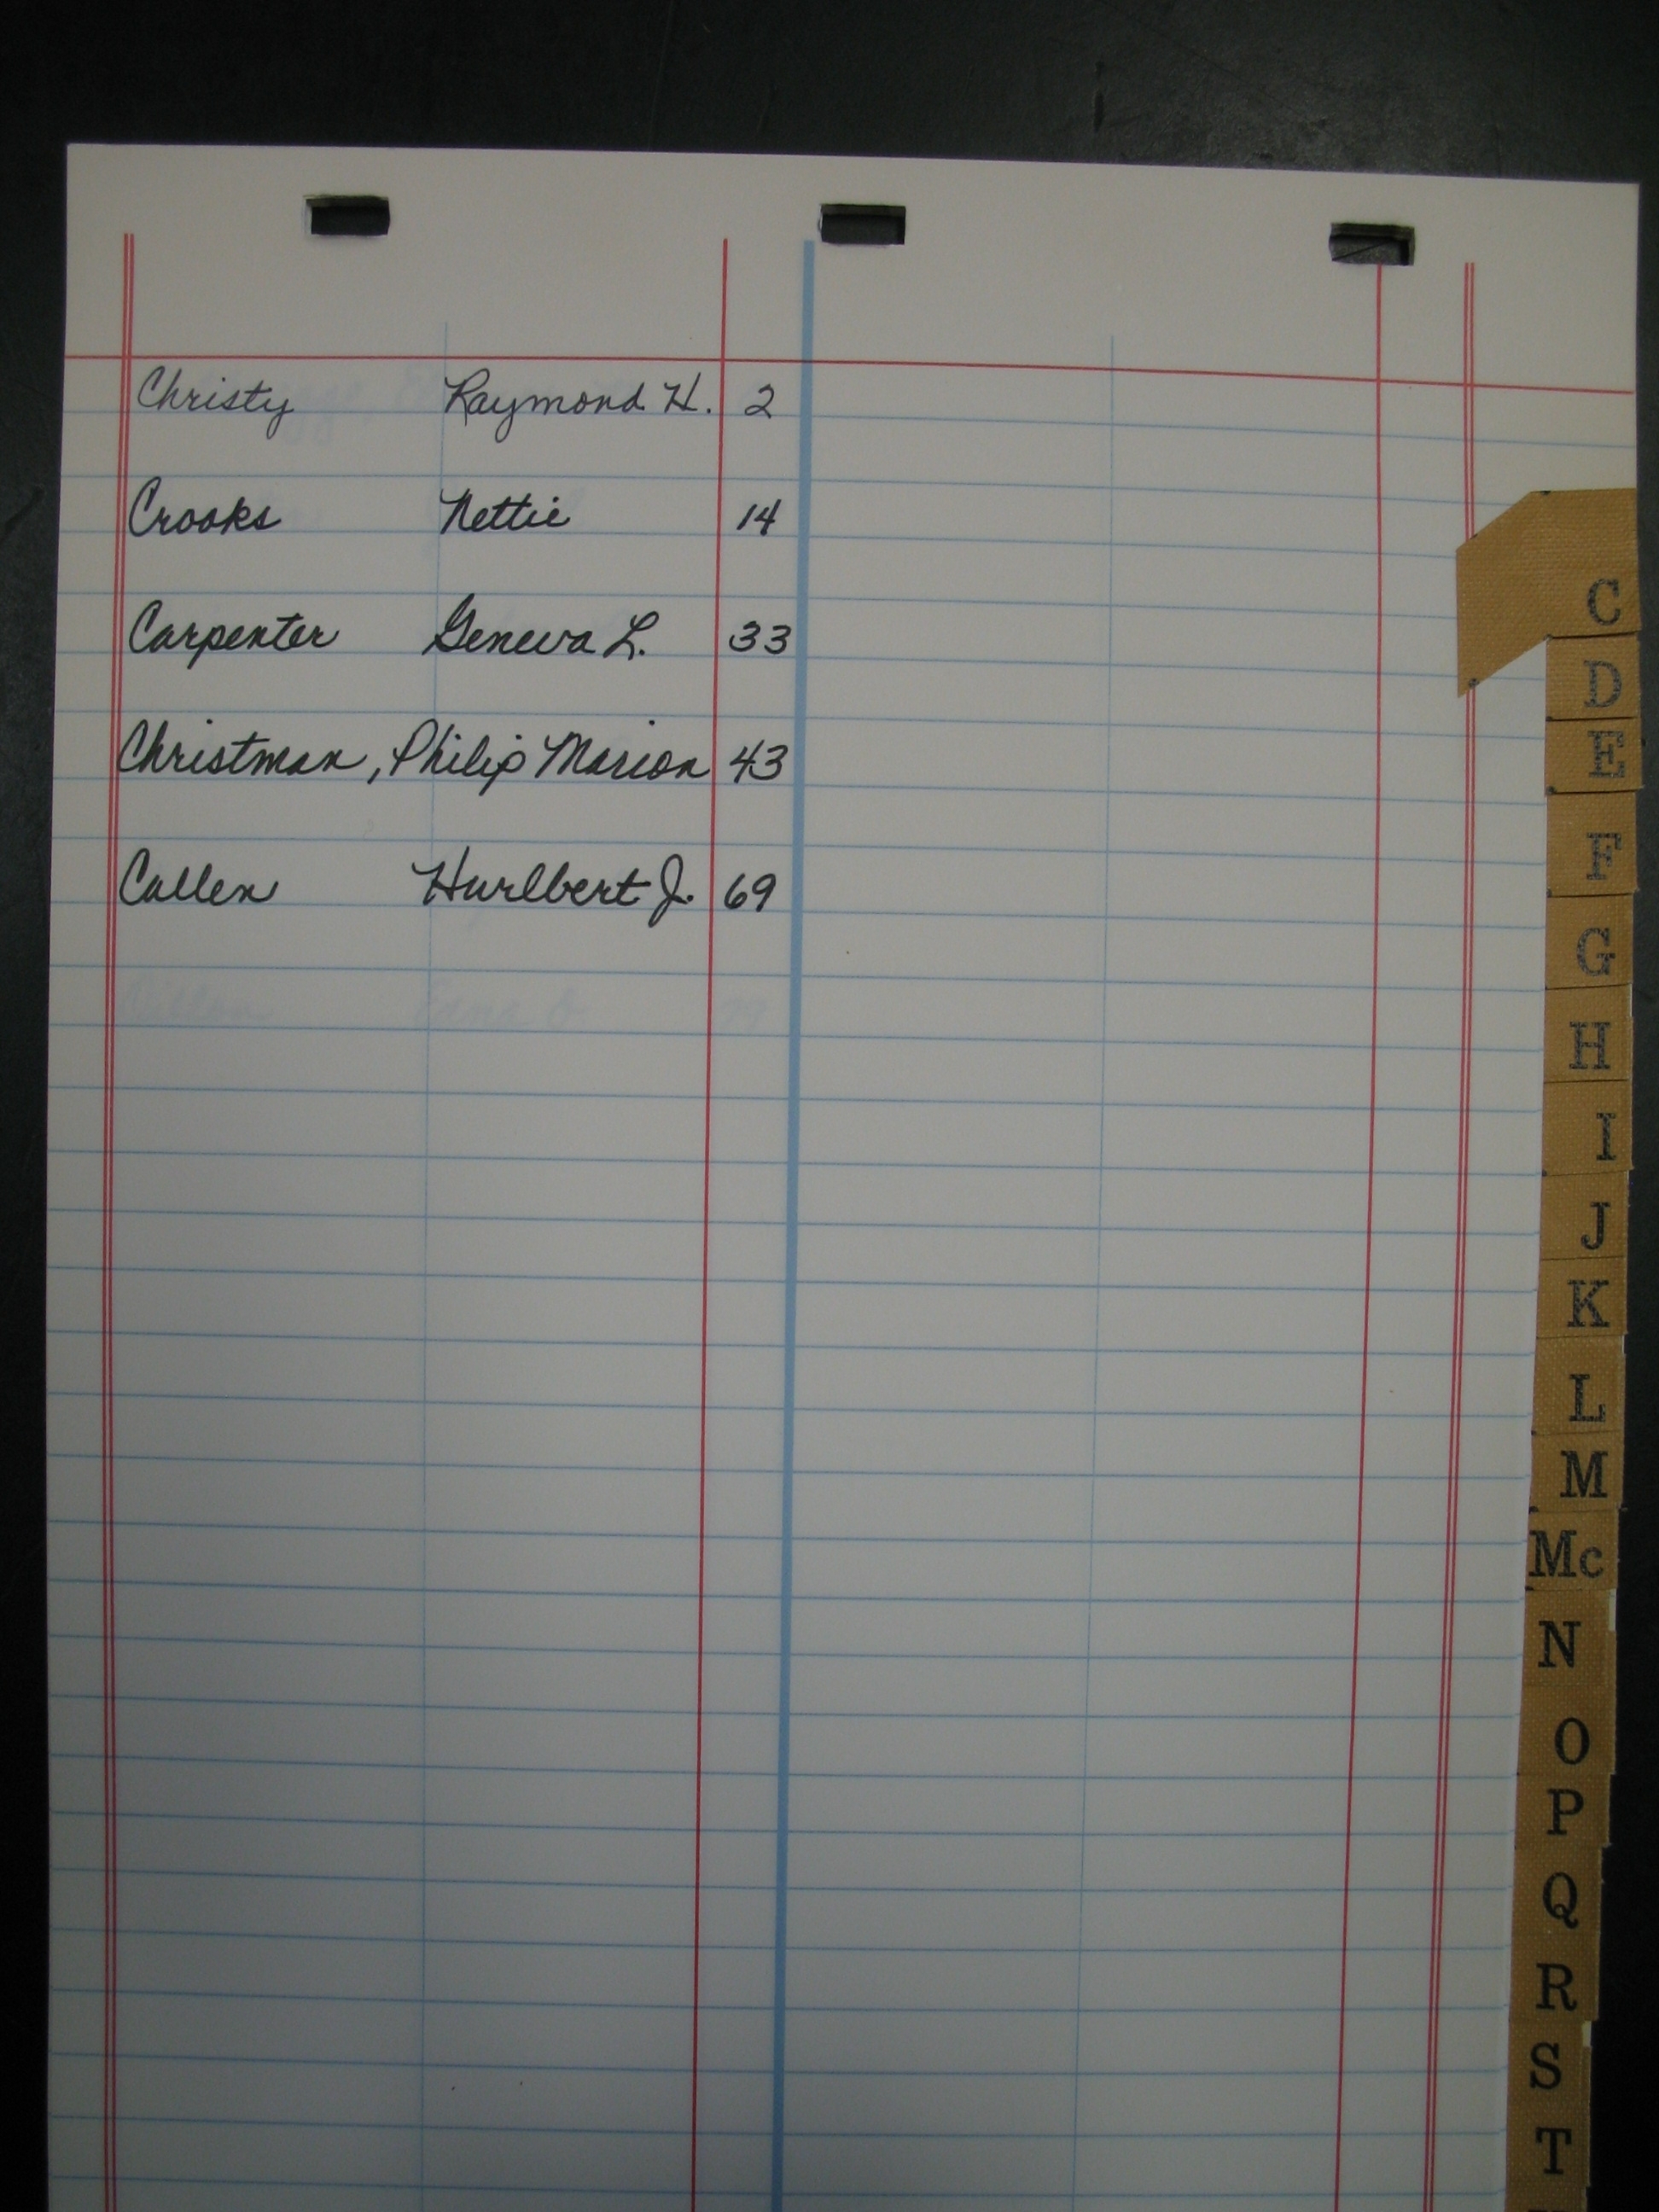 Christy Raymond H. 2
Crooks Nettie 14
Carpenter Geneva L. 33
Christman, Philip Marion 43
Cullen Hurlbert J. 69
C
D
E
F
G
H
I
J
K
L
M
Mc
N
O
P
Q
R
S
T